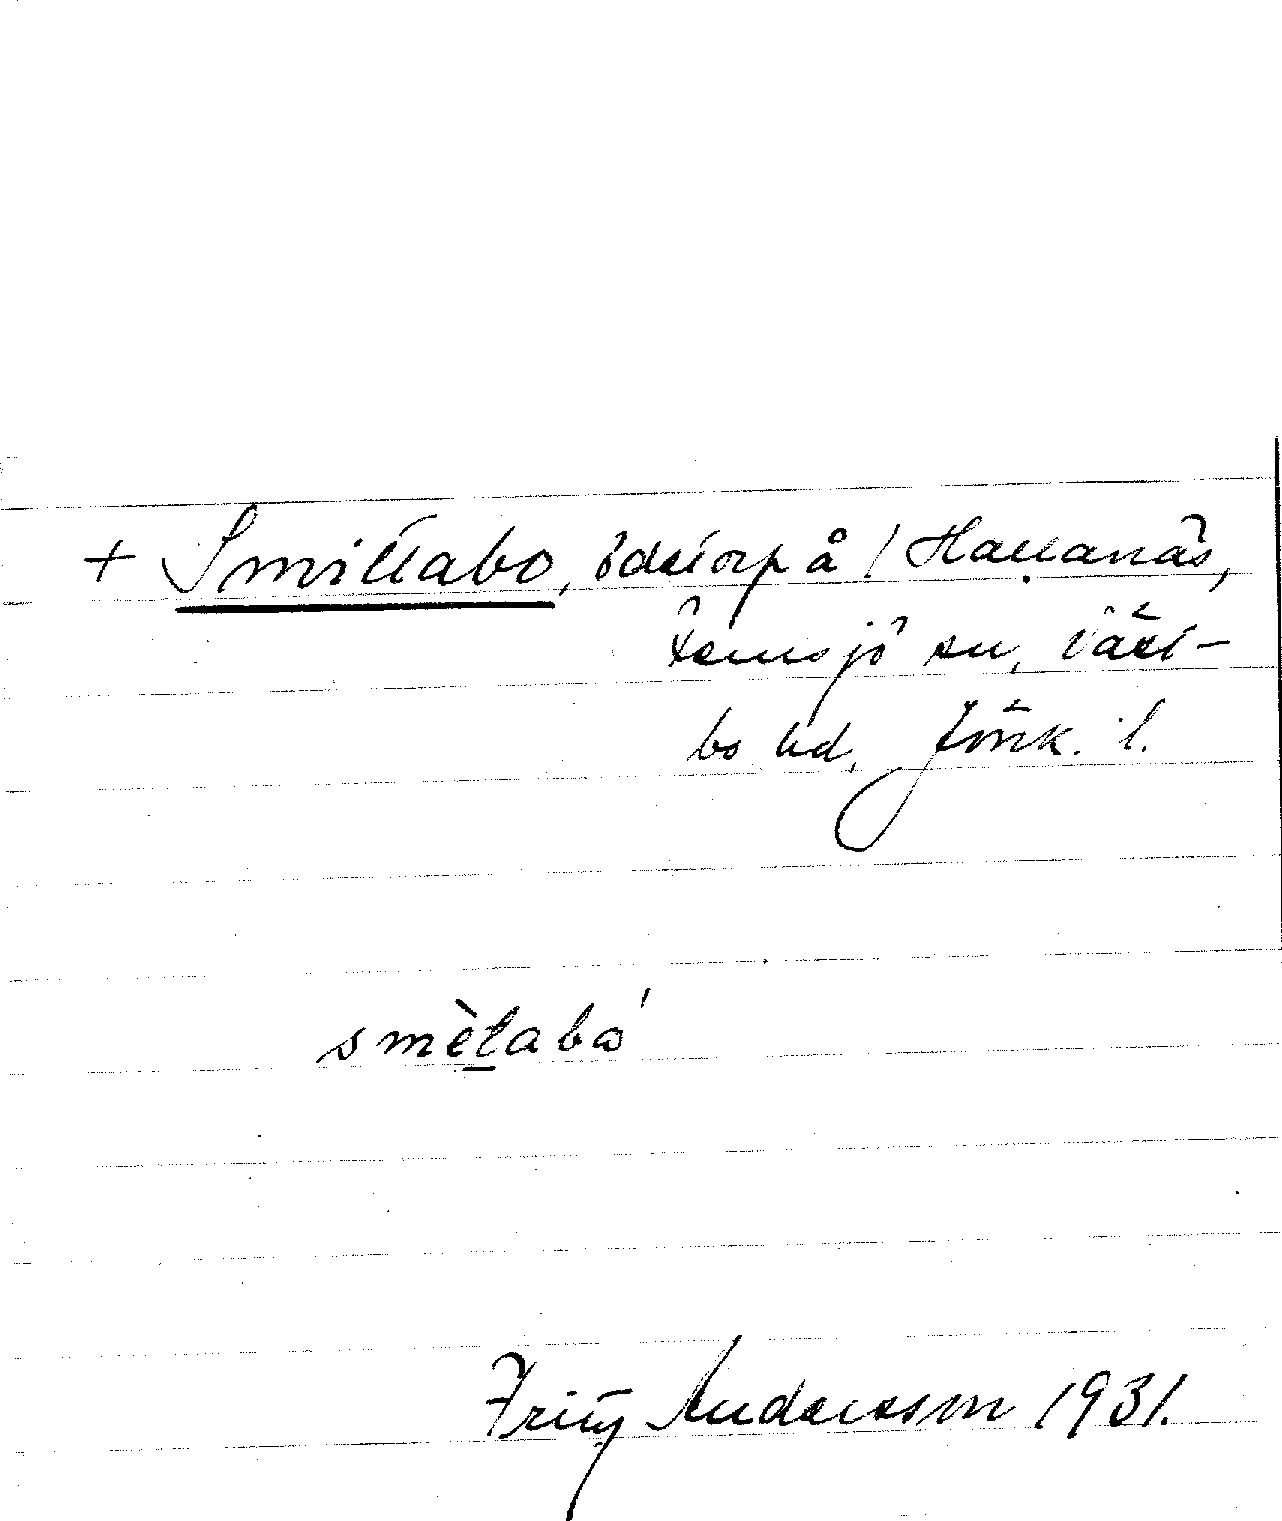 + Smittabo, ödetorp å / Hallanäs,
Femsjö sn, Väst-
bo hd, Jönk. l.
smètabω´
Fritz Andersson 1931.